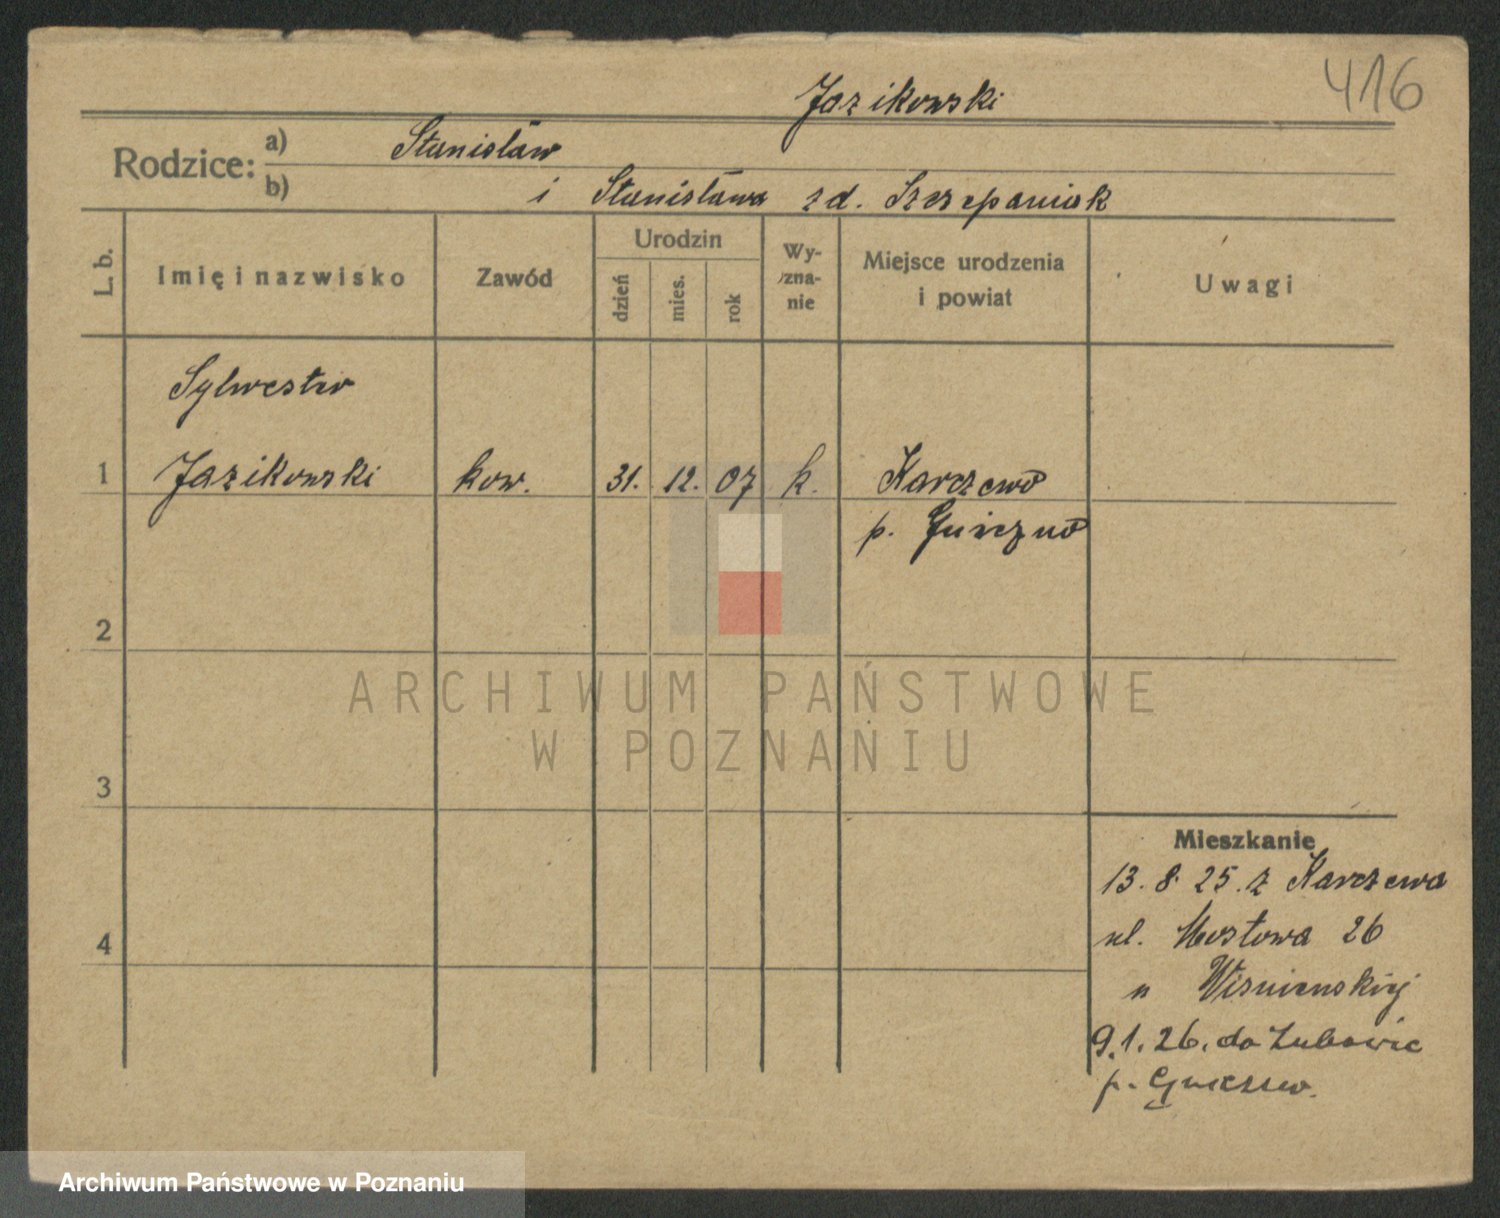 416
Jazikowski
Rodzice: a) Stanisław
b) i Stanisława zd. Szczepaniak
L. b. Imię i nazwisko Zawód Urodzin dzień mies. rok Wyzna-nie Miejsce urodzenia i powiat Uwagi
Sylwester
1 Jazikowski kow. 31. 12. 07 k. Karczewo
p. Gniezno
2
ARCHIWUM PAŃSTWOWE
W POZNANIU
3
Mieszkanie
13. 8. 25. z Karczewa
4 ul. Mostowa 26
u Wisniewskiej
9.1.26. do Łubowic
p.
Archiwum Państwowe w Poznaniu